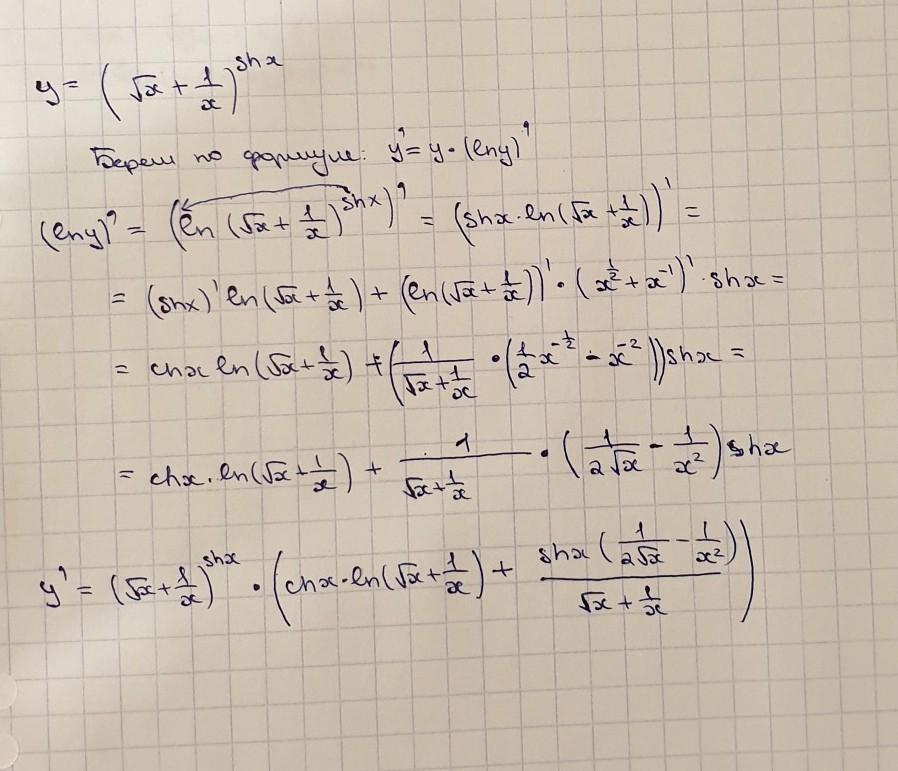 y = (√x + 1/x)^shx
Берем по формуле: y' = y · (ln y)'
(ln y)' = (ln (√x + 1/x)^shx)' = (shx · ln(√x + 1/x))' =
= (shx)' ln(√x + 1/x) + (ln(√x + 1/x))' · (x^(1/2) + x^(-1))' · shx =
= chx ln(√x + 1/x) + (1/(√x + 1/x) · (1/2 x^(-1/2) - x^(-2))) shx =
= chx · ln(√x + 1/x) + 1/(√x + 1/x) · (1/(2√x) - 1/x²) shx
y' = (√x + 1/x)^shx · (chx · ln(√x + 1/x) + (shx (1/(2√x) - 1/x²))/(√x + 1/x))